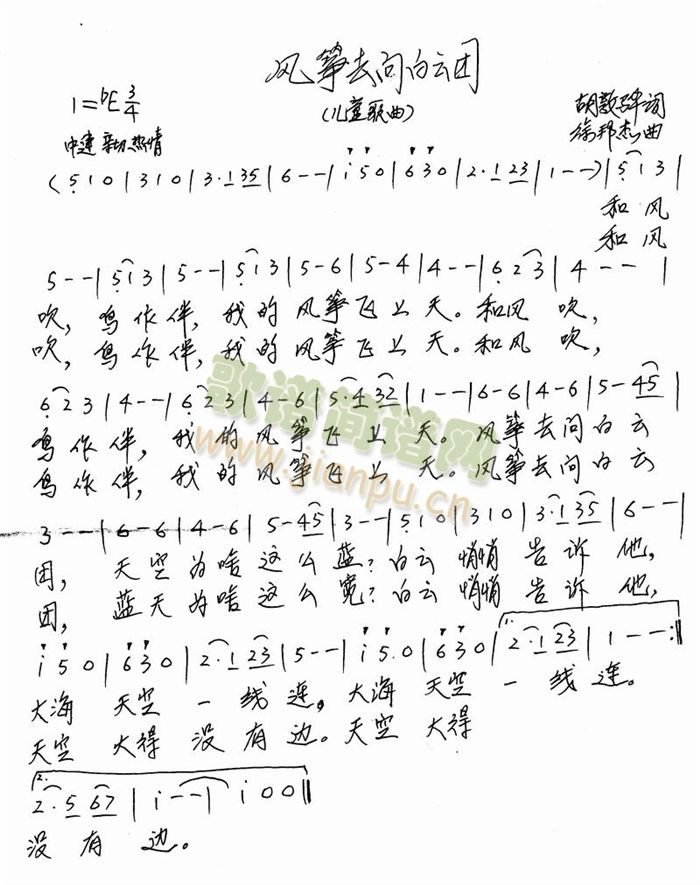 风筝去问白云团
(儿童歌曲)
1=ᵇE 3/4
胡敦骅词
徐邦杰曲
中速 亲切 热情
(5 1 0 | 3 1 0 | 3·1 35 | 6 - - | i 5 0 | 6 3 0 | 2·1 23 | 1 - - ) | 5 1 3 |
和风
和风
5 - - | 5 1 3 | 5 - - | 5 1 3 | 5 - 6 | 5 - 4 | 4 - - | 6 2 3 | 4 - - |
吹, 鸟作伴, 我的风筝飞上天。和风吹,
吹, 鸟作伴, 我的风筝飞上天。和风吹,
6 2 3 | 4 - - | 6 2 3 | 4 - 6 | 5·4 32 | 1 - - | 6 - 6 | 4 - 6 | 5 - 45 |
鸟作伴, 我的风筝飞上天。风筝去问白云
鸟作伴, 我的风筝飞上天。风筝去问白云
歌谱简谱网
www.jianpu.cn
3 - - | 6 - 6 | 4 - 6 | 5 - 45 | 3 - - | 5 1 0 | 3 1 0 | 3·1 35 | 6 - - |
团, 天空为啥这么蓝? 白云悄悄告诉他,
团, 蓝天为啥这么宽? 白云悄悄告诉他,
i 5 0 | 6 3 0 | 2·1 23 | 5 - - | i 5. 0 | 6 3 0 | 1. 2·1 23 | 1 - - :||
大海 天空 一线连。大海 天空 一线连。
天空 大得 没有边。天空 大得
2. 2·5 67 | i - - | i 0 0 ||
没有边。